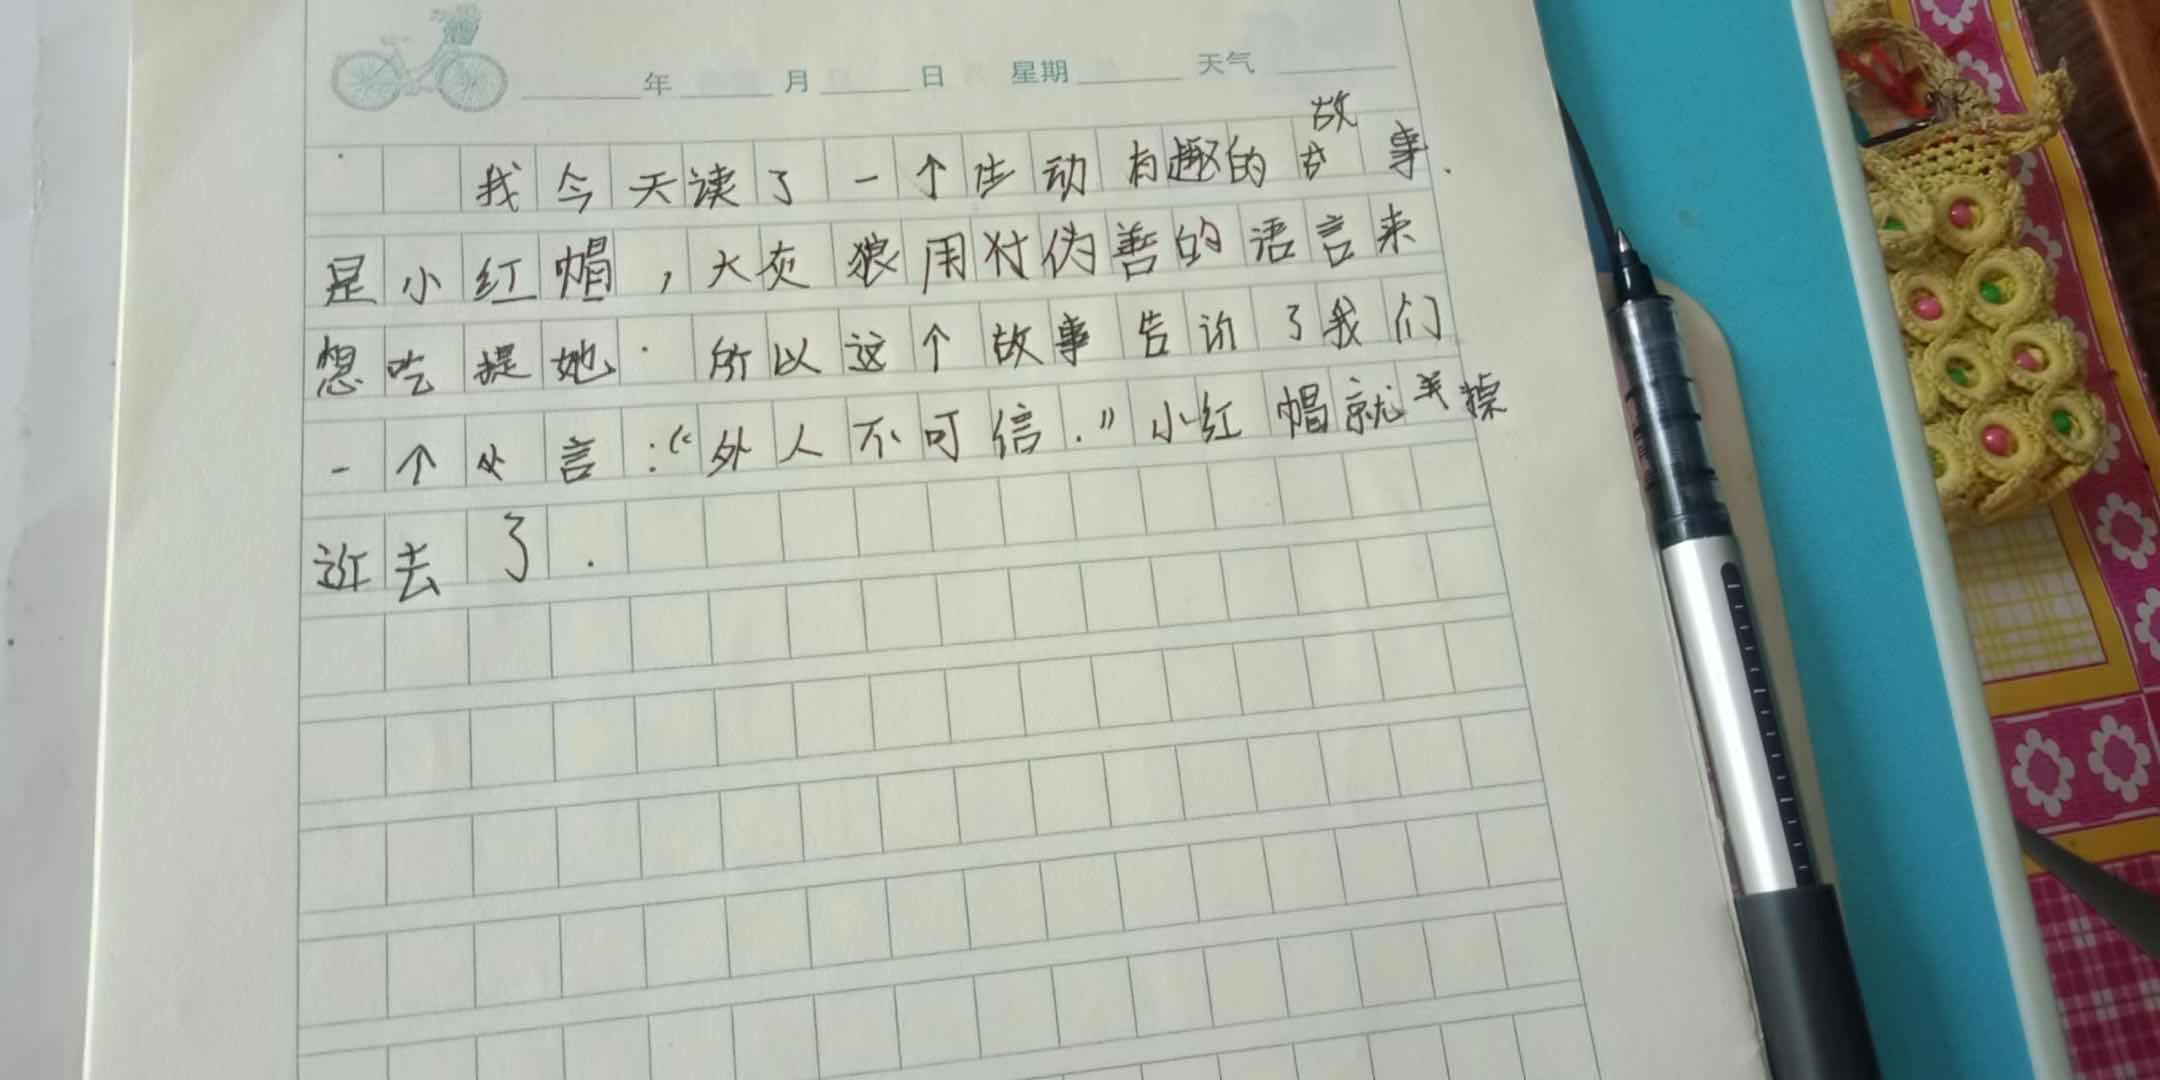 年 月 日 星期 天气
故
我今天读了一个生动有趣的古事.
是小红帽，大灰狼用对伪善的语言来
想吃提她.所以这个故事告诉了我们
一个 言:“外人不可信.”小红帽就 掉
近去了.